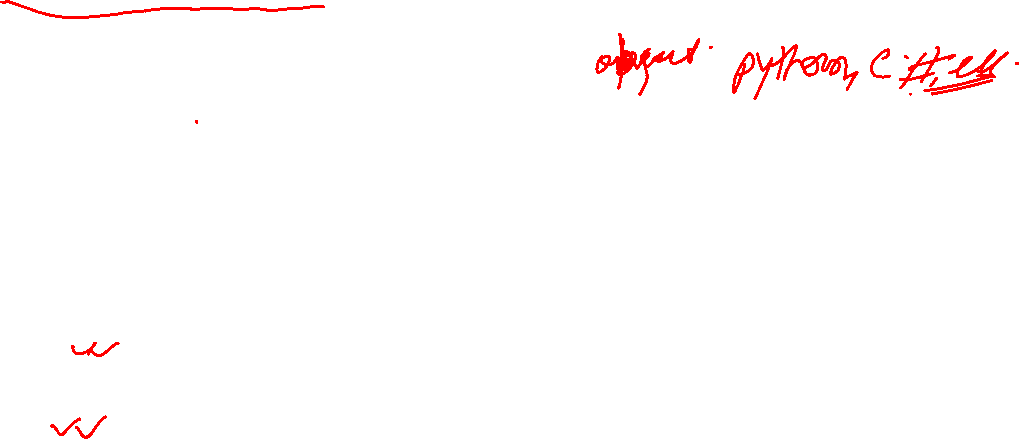 object. python, C#,